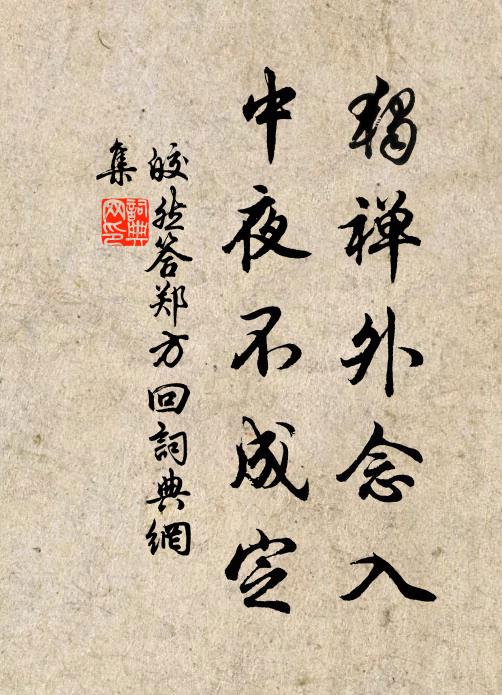 獨禅外念入
中夜不成定
皎然答郑方回詞典網
集
詞典
网印